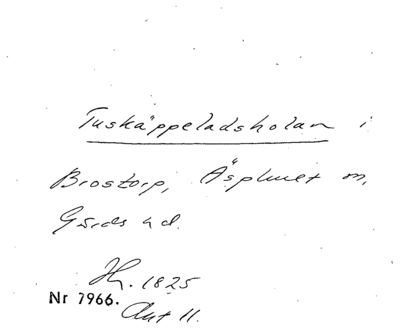 Tuskäppeladsholan i
Brostorp, Äsphult m,
Gärds hd.
1825
Nr 7966.